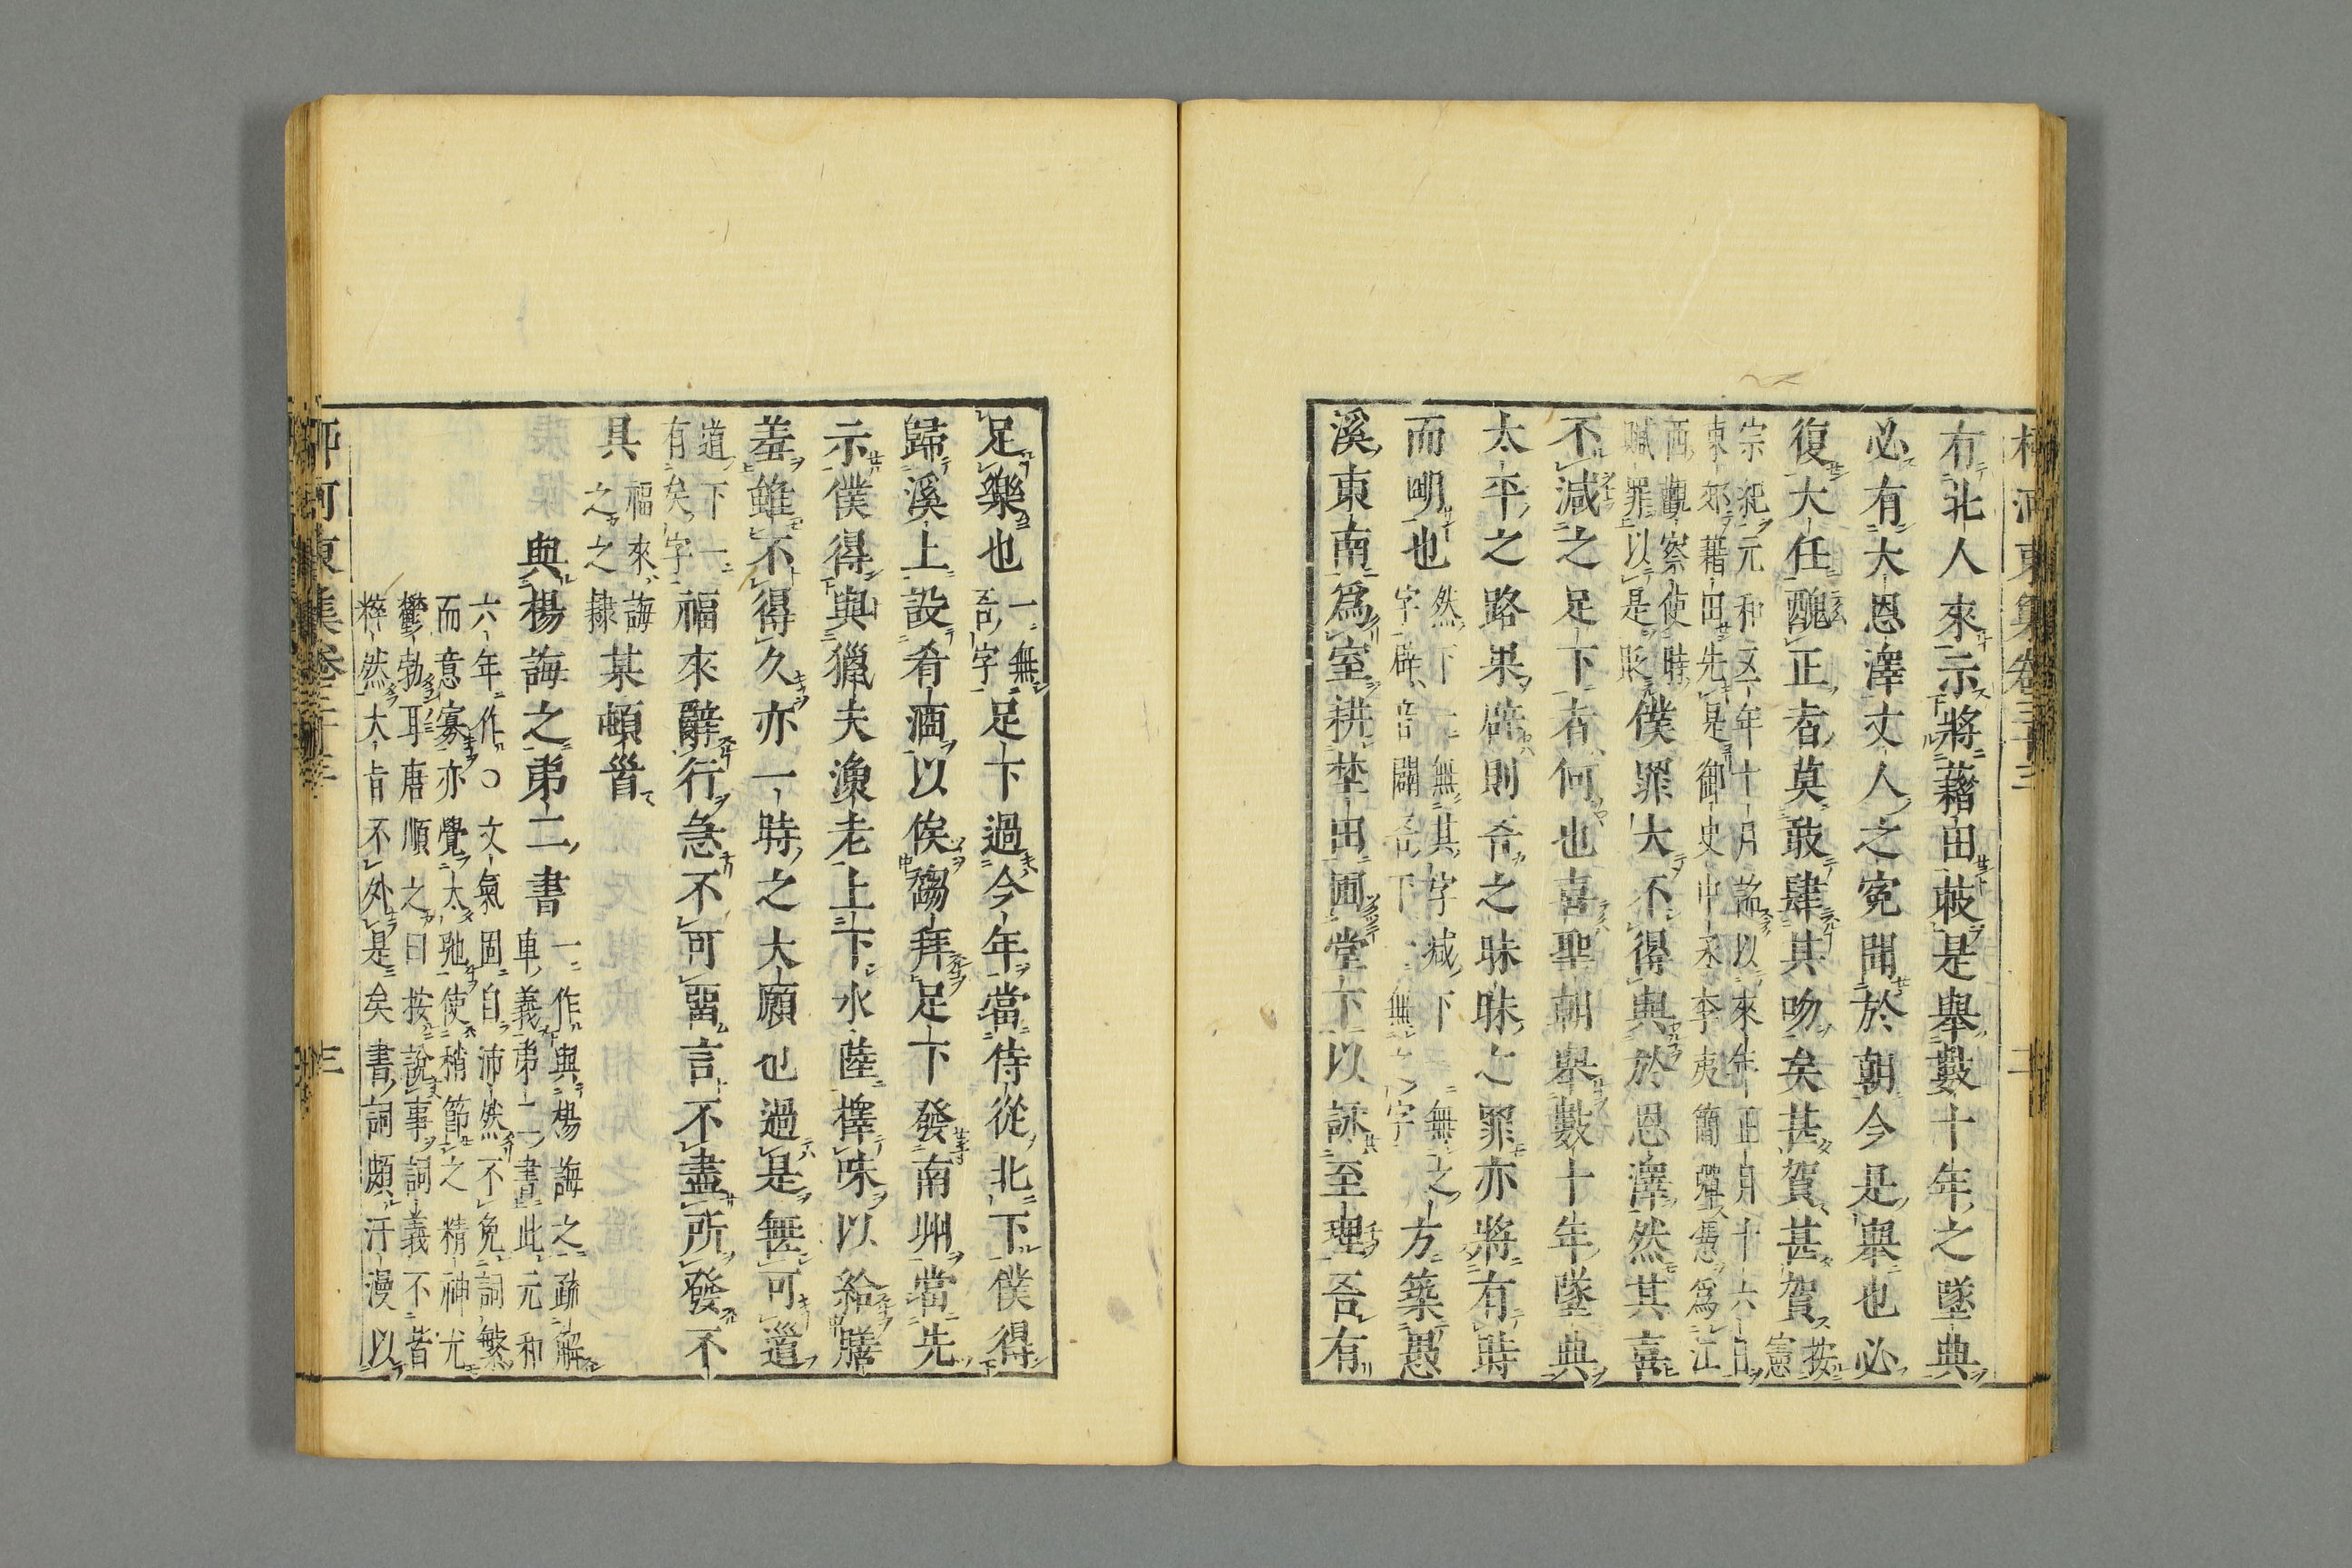 有北人來示將藉田敕是舉數十年之墜典
必有大恩澤丈人之冤聞於朝今是舉也必
復大任醜正者莫敢肆其吻矣甚賀甚賀按憲
宗紀元和五年十月詔以來年正月十六日
東郊藉田先是御史中丞李夷簡彈憑爲江
西觀察使時
贓罪以是貶僕罪大不得與於恩澤然其喜
不減之足下者何也喜聖朝舉數十年墜典
太平之路果辟則吾之昧昧之罪亦將有時
而明也然下一無其字減下一無之
字辟音闢吾下一無之字方築愚
溪東南爲室耕埜田圃堂下以詠至理吾有
足樂也一無
吾字足下過今年當侍從北下僕得
歸溪上設肴酒以俟趨拜足下發南州當先
示僕得與獵夫漁老上下水陸擇味以給膳
羞雖不得久亦一時之大願也過是無可道
道下一
有矣字福來辭行急不可留言不盡所發不
具福來誨
之之隸某頓首
與楊誨之弟二書一作與楊誨之疏解
車義弟二書此元和
六年作○文氣固自沛然不免詞繁
而意寡亦覺太馳使稍節之精神尤
鬱勃耳唐順之曰按說事詞義不昔
粹然大旨不外是矣書詞頗汗漫以
柳河東集卷三十三